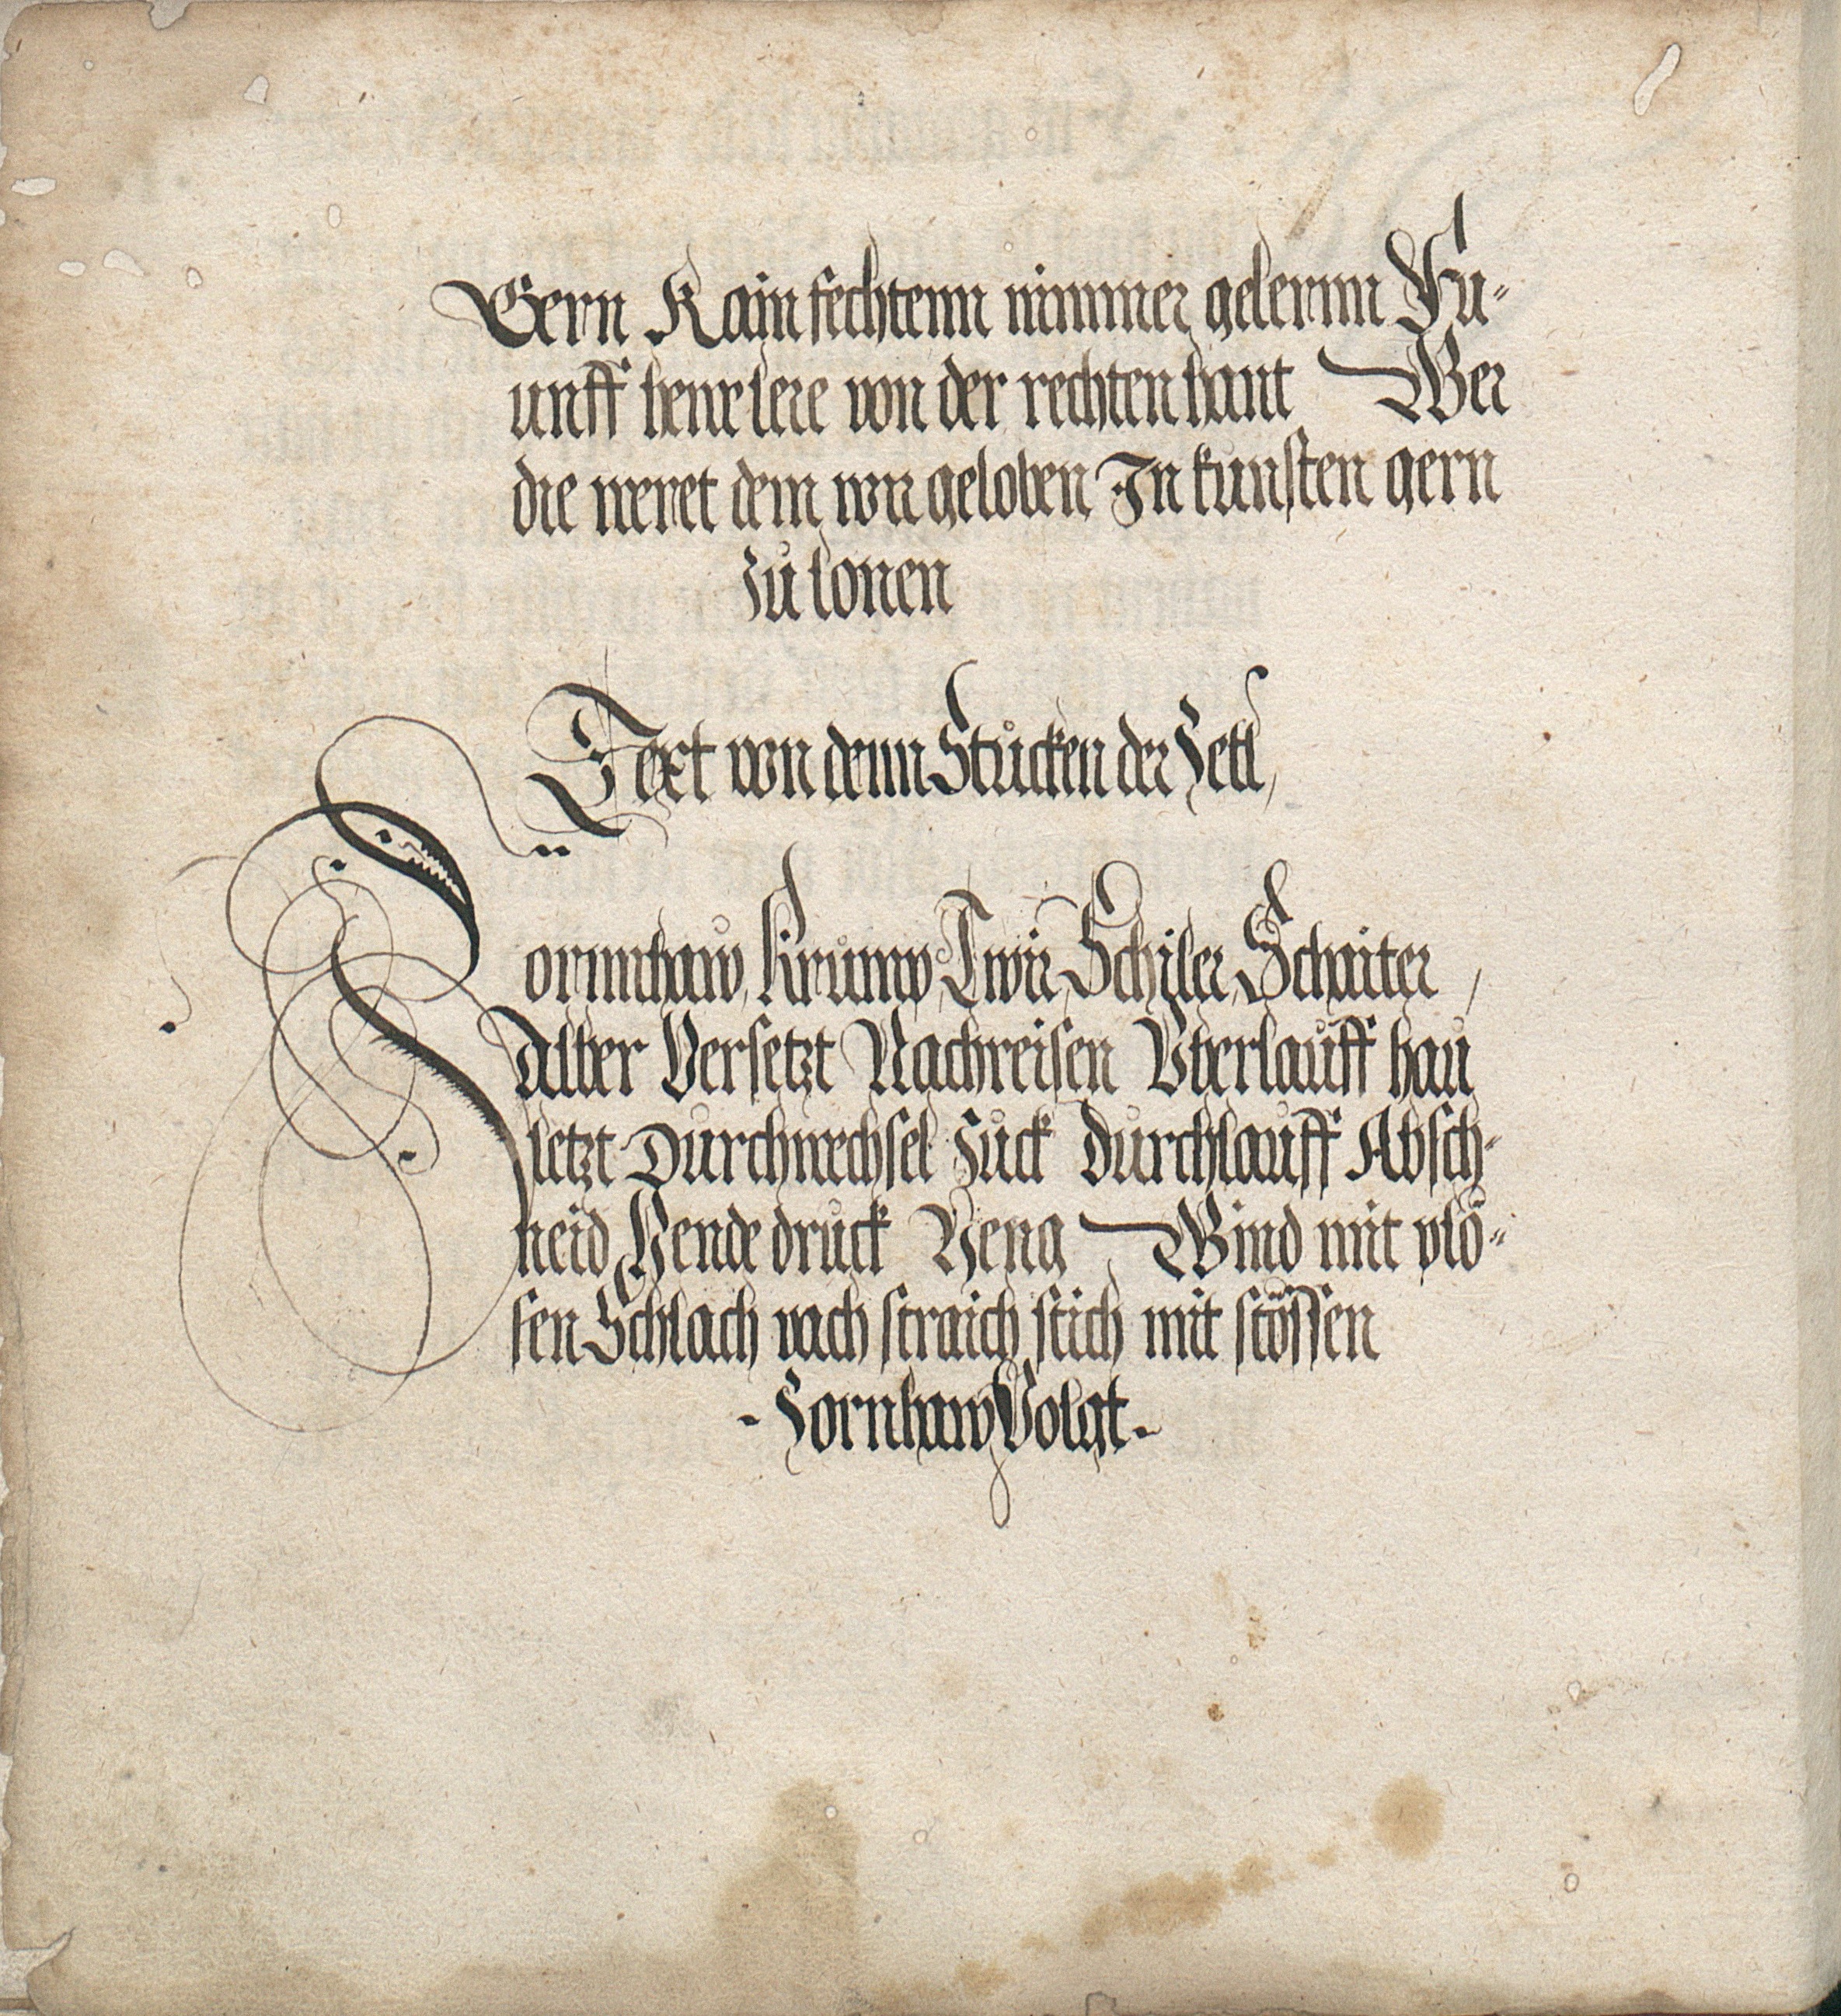 Gern Kain fechtenn nimmer gelernn Fu-
unff hewe lere von der rechten hant Wer
die weret dem wir geloben In kunsten gern
zů lonen
Text von denn Stůcken der Zetl
Zornnhaw, Krůmp, Twir, Schiler, Schaiter,
Alber Versetzt Nachreisen Vberlaůff haů
letzt Důrchwechsel Zůck Důrchlaůff Absch-
neid Hende drůck Heng Wind mit plö-
sen Schlach vach straich stich mit stössen
- Zornhaw Volgt -